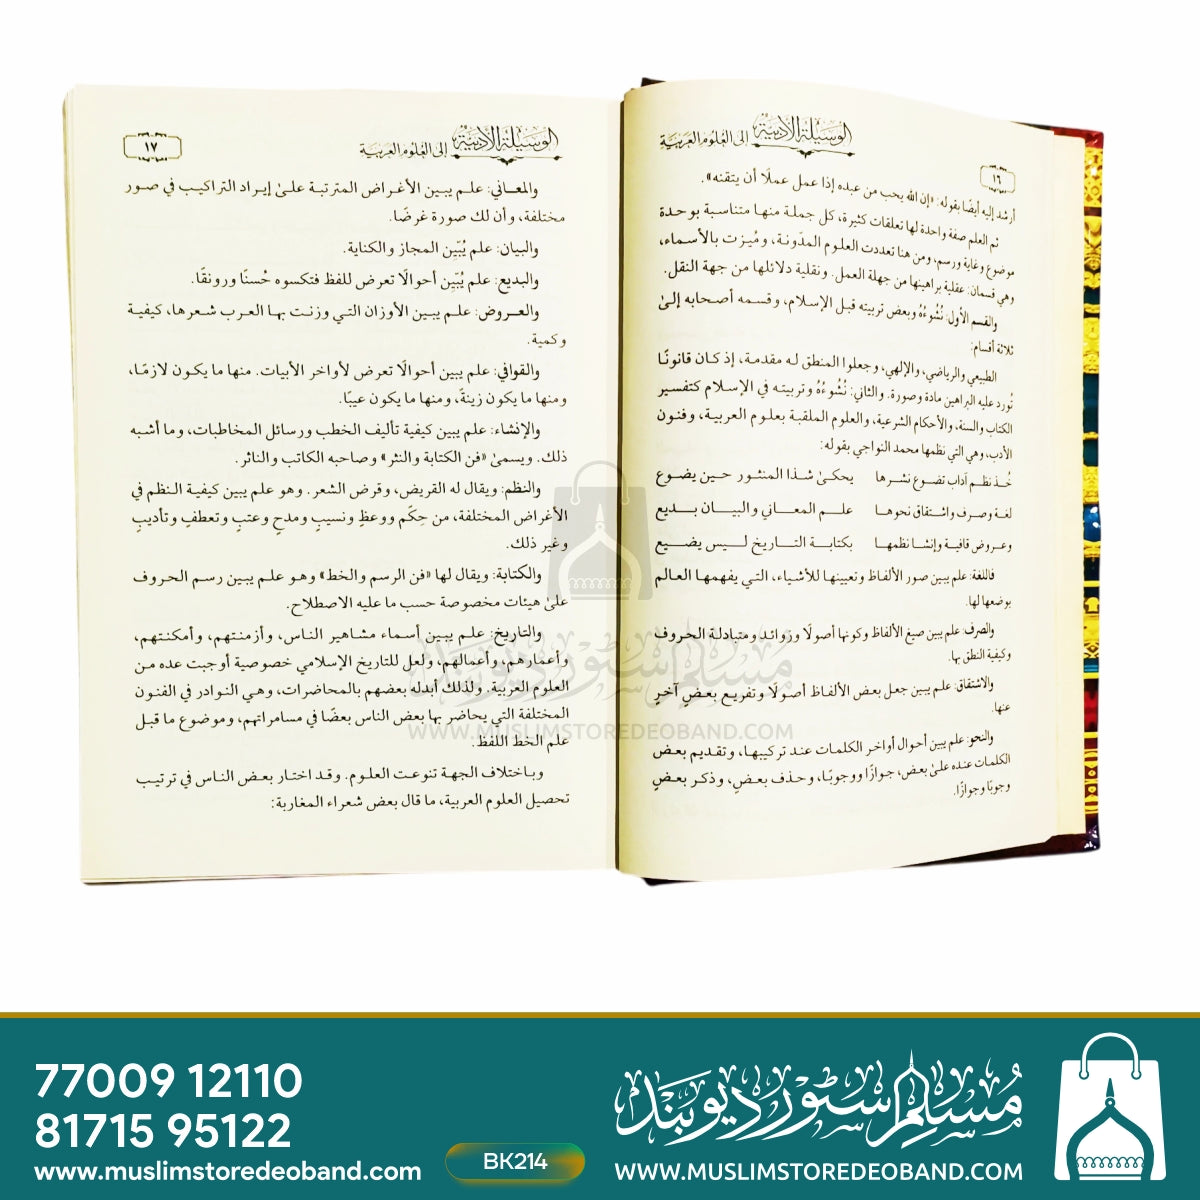 الوسيلة الأدبية إلى العلوم العربية
١٦
أرشد إليه أيضًا بقوله: «إن الله يحب من عبده إذا عمل عملًا أن يتقنه».
ثم العلم صفة واحدة لها تعلقات كثيرة، كل جملة منها متناسبة بوحدة
موضوع وغاية ورسم، ومن هنا تعددت العلوم المدّونة، ومُيزت بالأسماء،
وهي قسمان: عقلية براهينها من جهلة العمل. ونقلية دلائلها من جهة النقل.
والقسم الأول: نُشُوءُهُ وبعض تربيته قبل الإسلام، وقسمه أصحابه إلىٰ
ثلاثة أقسام:
الطبيعي والرياضي، والإلهي، وجعلوا المنطق له مقدمة، إذ كان قانونًا
تُورد عليه البراهين مادة وصورة. والثاني: نُشُوءُهُ وتربيته في الإسلام كتفسير
الكتاب والسنة، والأحكام الشرعية، والعلوم الملقبة بعلوم العربية، وفنون
الأدب، وهي التي نظمها محمد النواجي بقوله:
خُذ نظم آداب تضوع نشرها يحكىٰ شذا المنثور حين يضوع
لغة وصرف واشتقاق نحوها علم المعاني والبيان بديع
وعروض قافية وإنشا نظمها بكتابة التاريخ ليس يضيع
فاللغة: علم يبين صور الألفاظ وتعيينها للأشياء، التي يفهمها العالم
بوضعها لها.
والصرف: علم يبين صيغ الألفاظ وكونها أصولًا وزوائد ومتبادلة الحروف
وكيفية النطق بها.
والاشتقاق: علم يبين جعل بعض الألفاظ أصولًا وتفريع بعضٍ آخرٍ
عنها.
والنحو: علم يبين أحوال أواخر الكلمات عند تركيبها، وتقديم بعض
الكلمات عنده علىٰ بعض، جوازًا ووجوبًا، وحذف بعضٍ، وذكر بعضٍ
وجوبًا وجوازًا.
الوسيلة الأدبية إلى العلوم العربية
١٧
والمعاني: علم يبين الأغراض المترتبة علىٰ إيراد التراكيب في صور
مختلفة، وأن لك صورة غرضًا.
والبيان: علم يُبّين المجاز والكناية.
والبديع: علم يُبّين أحوالًا تعرض للفظ فتكسوه حُسنًا ورونقًا.
والعروض: علم يبين الأوزان التي وزنت بها العرب شعرها، كيفية
وكمية.
والقوافي: علم يبين أحوالًا تعرض لأواخر الأبيات. منها ما يكون لازمًا،
ومنها ما يكون زينةً، ومنها ما يكون عيبًا.
والإنشاء: علم يبين كيفية تأليف الخطب ورسائل المخاطبات، وما أشبه
ذلك. ويسمىٰ «فن الكتابة والنثر» وصاحبه الكاتب والناثر.
والنظم: ويقال له القريض، وقرض الشعر. وهو علم يبين كيفية النظم في
الأغراض المختلفة، من حِكَم ووعظٍ ونسيبٍ ومدحٍ وعتبٍ وتعطفٍ وتأديبٍ
وغير ذلك.
والكتابة: ويقال لها «فن الرسم والخط» وهو علم يبين رسم الحروف
علىٰ هيئات مخصوصة حسب ما عليه الاصطلاح.
والتاريخ: علم يبين أسماء مشاهير الناس، وأزمنتهم، وأمكنتهم،
وأعمارهم، وأعمالهم، ولعل للتاريخ الإسلامي خصوصية أوجبت عده من
العلوم العربية. ولذلك أبدله بعضهم بالمحاضرات، وهي النوادر في الفنون
المختلفة التي يحاضر بها بعض الناس بعضًا في مسامراتهم، وموضوع ما قبل
علم الخط اللفظ.
وباختلاف الجهة تنوعت العلوم. وقد اختار بعض الناس في ترتيب
تحصيل العلوم العربية، ما قال بعض شعراء المغاربة:
مسلم سٹور دیوبند
WWW.MUSLIMSTOREDEOBAND.COM
77009 12110
81715 95122
www.muslimstoredeoband.com
BK214
مسلم سٹور دیوبند
WWW.MUSLIMSTOREDEOBAND.COM